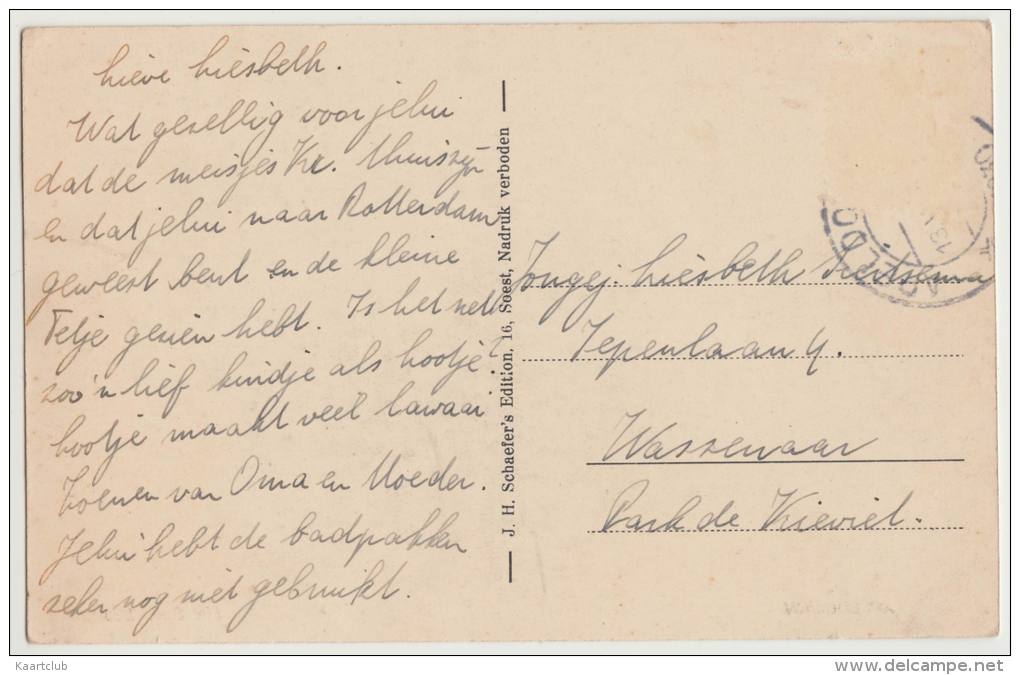 Lieve Liesbeth.
Wat gezellig voor jelui
dat de meisjes Kr. thuis zijn
en dat jelui naar Rotterdam
geweest bent en de kleine
Tetje gezien hebt. Is het nett
zoo'n lief kindje als Lootje?
Lootje maakt veel lawaai
Zoenen van Oma en Moeder.
Jelui hebt de badpakken
zeker nog niet gebruikt.
J. H. Schaefer's Edition, 16, Soest, Nadruk verboden
Jongej. Liesbeth
Iepenlaan 4.
Wassenaar
Park de Kieviet.
Kaartclub
www.delcampe.net